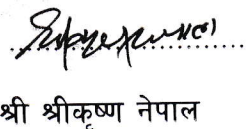 श्री श्रीकृष्ण नेपाल